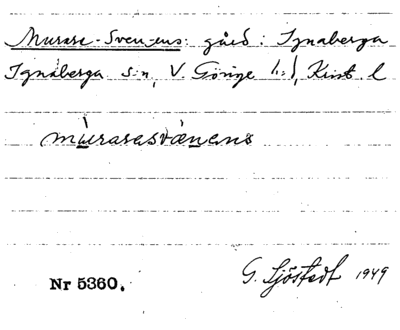 Murare-Sven-ens: gård: Ignaberga
Ignaberga sn, V. Göinge h:d, Krist. l
mùrarasvä̀nens
Nr 5360.
G. Sjöstedt 1949